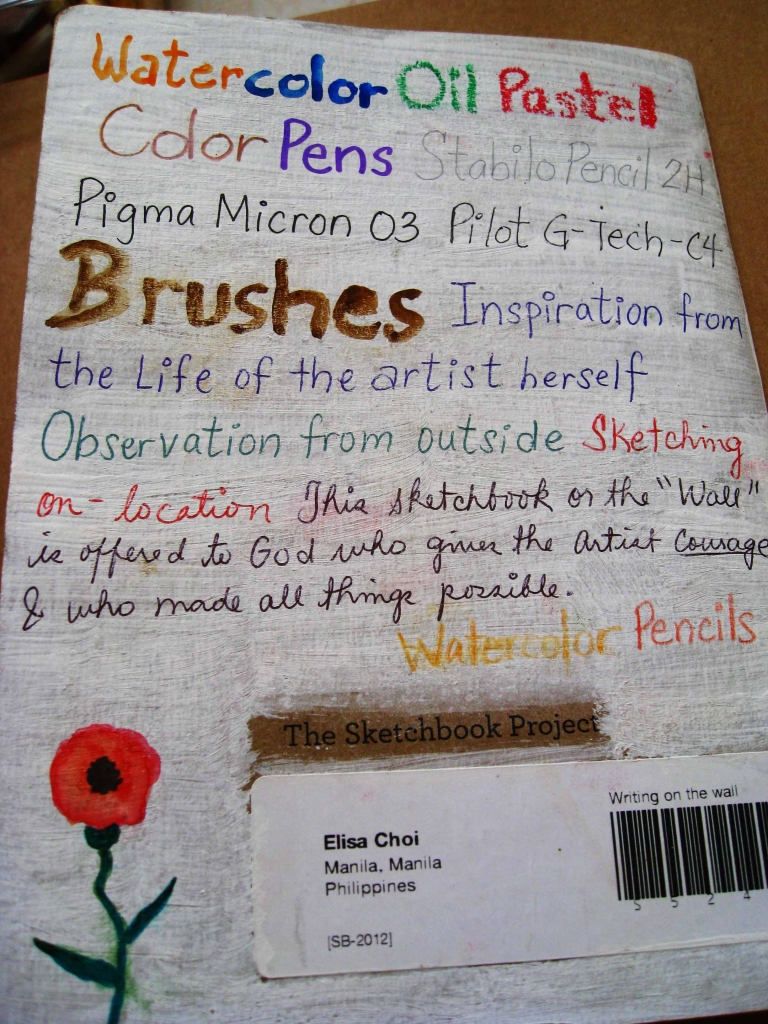 Watercolor Oil Pastel
Color Pens Stabilo Pencil 2H
Pigma Micron 03 Pilot G-Tech-C4
Brushes Inspiration from
the Life of the artist herself
Observation from outside Sketching
on-location This sketchbook or the "Wall"
is offered to God who gives the artist Courage
& who made all things possible.
Watercolor Pencils
The Sketchbook Project
Writing on the wall
Elisa Choi
Manila, Manila
Philippines
5 5 2 4
[SB-2012]